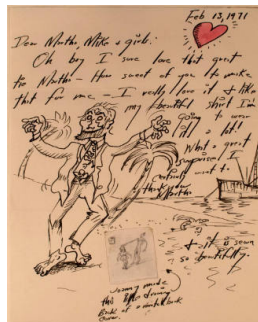 Feb 13, 1971
Dear Martha, Mike & girls:
Oh boy I sure love that great
tie Martha - How sweet of you to make
that for me - I really love it & like
my beautiful shirt I'm
going to wear
it a lot!
What a great
surprise! I
certainly want to
thank you
Martha
& it is sewn
so beautifully.
Jonny made
this little drawing
Back of a match book
cover.